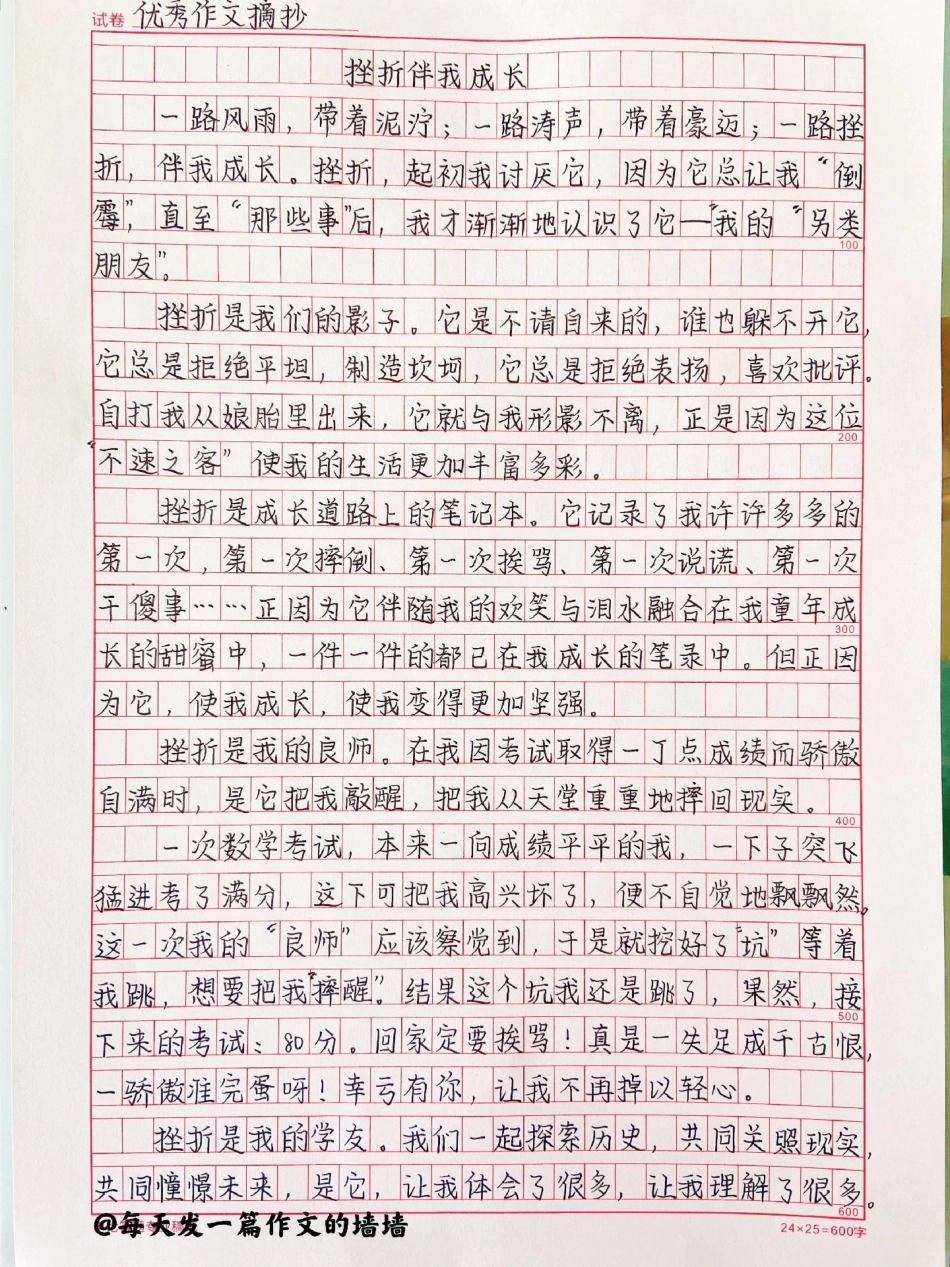 试卷 优秀作文摘抄
挫折伴我成长
一路风雨，带着泥泞；一路涛声，带着豪迈；一路挫
折，伴我成长。挫折，起初我讨厌它，因为它总让我“倒
霉”，直至“那些事”后，我才渐渐地认识了它——我的“另类
100
朋友”。
挫折是我们的影子。它是不请自来的，谁也躲不开它，
它总是拒绝平坦，制造坎坷，它总是拒绝表扬，喜欢批评。
自打我从娘胎里出来，它就与我形影不离，正是因为这位
200
“不速之客”使我的生活更加丰富多彩。
挫折是成长道路上的笔记本。它记录了我许许多多的
第一次，第一次摔倒、第一次挨骂、第一次说谎、第一次
干傻事……正因为它伴随我的欢笑与泪水融合在我童年成
300
长的甜蜜中，一件一件的都已在我成长的笔录中。但正因
为它，使我成长，使我变得更加坚强。
挫折是我的良师。在我因考试取得一丁点成绩而骄傲
自满时，是它把我敲醒，把我从天堂重重地摔回现实。
400
一次数学考试，本来一向成绩平平的我，一下子突飞
猛进考了满分，这下可把我高兴坏了，便不自觉地飘飘然。
这一次我的“良师”应该察觉到，于是就挖好了“坑”等着
我跳，想要把我“摔醒”。结果这个坑我还是跳了，果然，接
500
下来的考试：80分。回家定要挨骂！真是一失足成千古恨，
一骄傲准完蛋呀！幸亏有你，让我不再掉以轻心。
挫折是我的学友。我们一起探索历史，共同关照现实，
共同憧憬未来，是它，让我体会了很多，让我理解了很多。
600
@每天发一篇作文的墙墙
24×25=600字